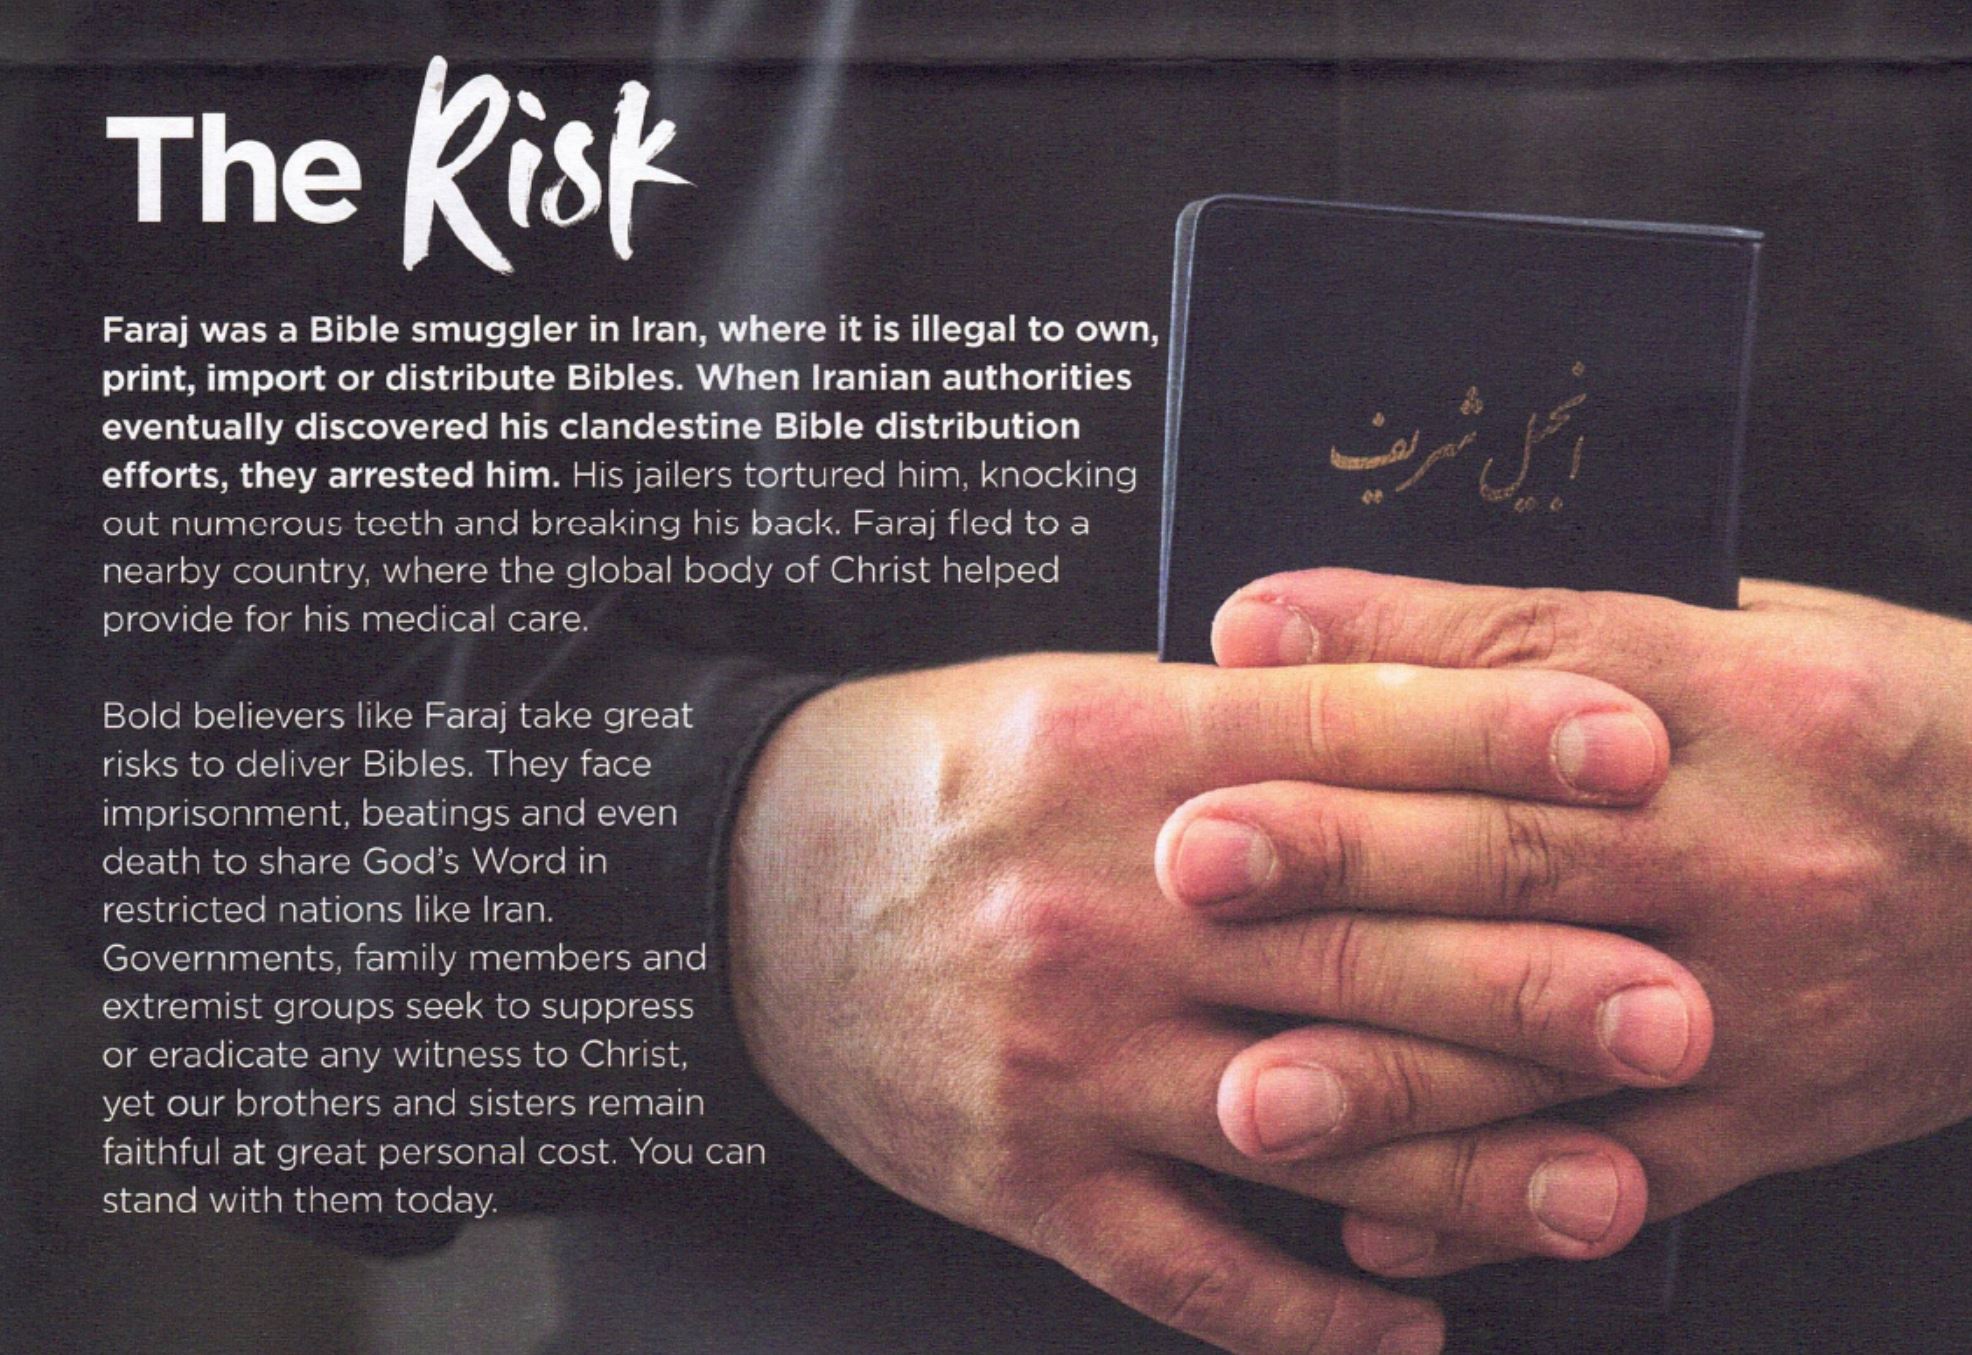 The Risk
Faraj was a Bible smuggler in Iran, where it is illegal to own,
print, import or distribute Bibles. When Iranian authorities
eventually discovered his clandestine Bible distribution
efforts, they arrested him. His jailers tortured him, knocking
out numerous teeth and breaking his back. Faraj fled to a
nearby country, where the global body of Christ helped
provide for his medical care.
Bold believers like Faraj take great
risks to deliver Bibles. They face
imprisonment, beatings and even
death to share God's Word in
restricted nations like Iran.
Governments, family members and
extremist groups seek to suppress
or eradicate any witness to Christ,
yet our brothers and sisters remain
faithful at great personal cost. You can
stand with them today.
انجیل شریف